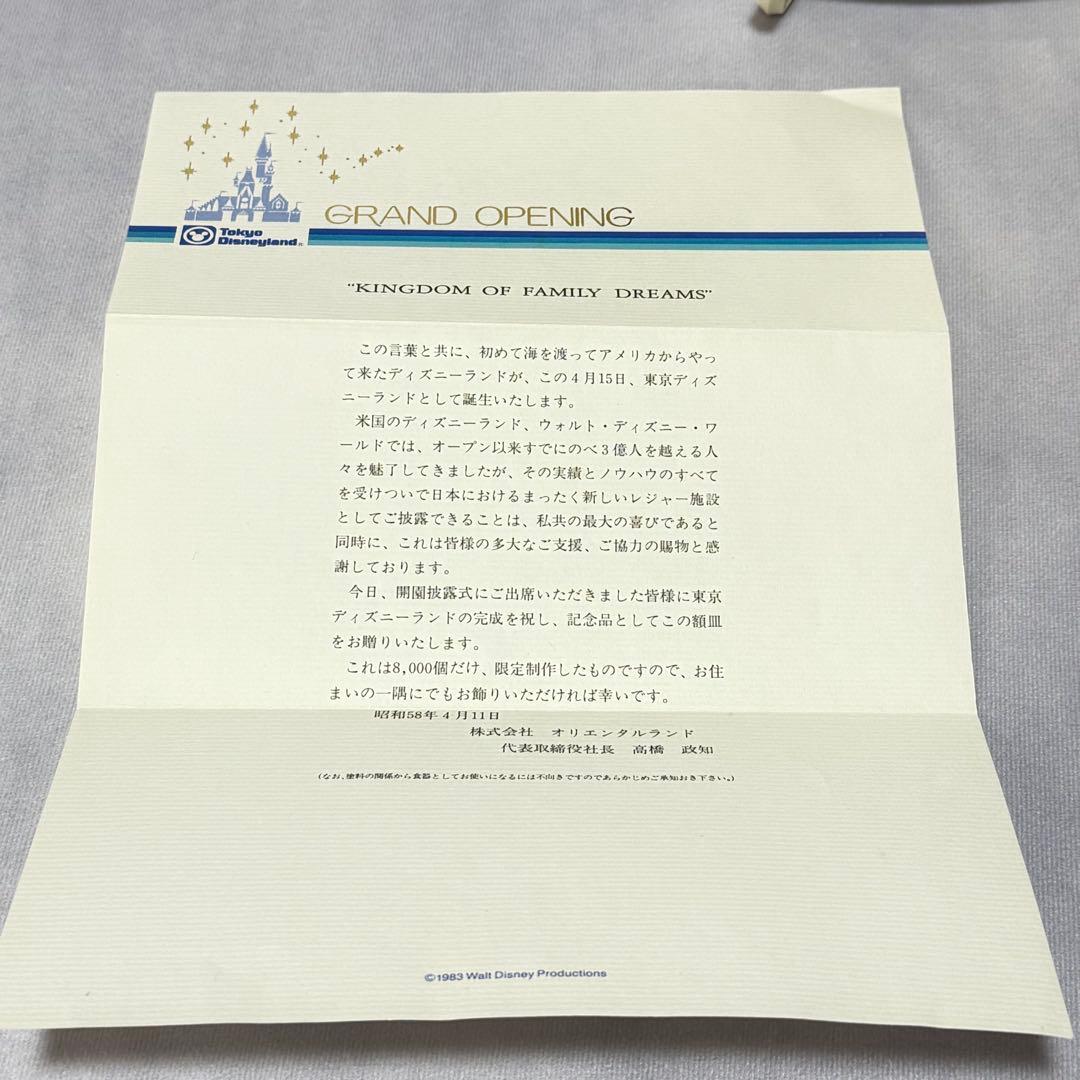 GRAND OPENING
Tokyo
Disneyland®
"KINGDOM OF FAMILY DREAMS"
この言葉と共に、初めて海を渡ってアメリカからやっ
て来たディズニーランドが、この4月15日、東京ディズ
ニーランドとして誕生いたします。
米国のディズニーランド、ウォルト・ディズニー・ワ
ールドでは、オープン以来すでにのべ3億人を越える人
々を魅了してきましたが、その実績とノウハウのすべて
を受けついで日本におけるまったく新しいレジャー施設
としてご披露できることは、私共の最大の喜びであると
同時に、これは皆様の多大なご支援、ご協力の賜物と感
謝しております。
今日、開園披露式にご出席いただきました皆様に東京
ディズニーランドの完成を祝し、記念品としてこの額皿
をお贈りいたします。
これは8,000個だけ、限定制作したものですので、お住
まいの一隅にでもお飾りいただければ幸いです。
昭和58年4月11日
株式会社 オリエンタルランド
代表取締役社長 高橋 政知
(なお、塗料の関係から食器としてお使いになるには不向きですのであらかじめご承知おき下さい。)
©1983 Walt Disney Productions